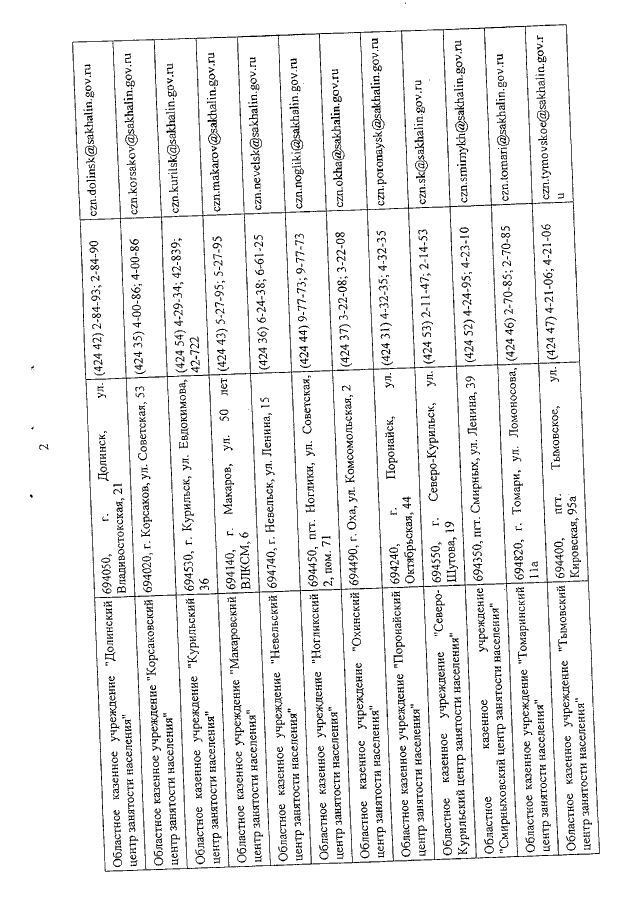 2
Областное казенное учреждение "Долинский
центр занятости населения"
694050, г. Долинск, ул.
Владивостокская, 21
(424 42) 2-84-93; 2-84-90
czn.dolinsk@sakhalin.gov.ru
Областное казенное учреждение "Корсаковский
центр занятости населения"
694020, г. Корсаков, ул. Советская, 53
(424 35) 4-00-86; 4-00-86
czn.korsakov@sakhalin.gov.ru
Областное казенное учреждение "Курильский
центр занятости населения"
694530, г. Курильск, ул. Евдокимова,
36
(424 54) 4-29-34; 42-839;
42-722
czn.kurilsk@sakhalin.gov.ru
Областное казенное учреждение "Макаровский
центр занятости населения"
694140, г. Макаров, ул. 50 лет
ВЛКСМ, 6
(424 43) 5-27-95; 5-27-95
czn.makarov@sakhalin.gov.ru
Областное казенное учреждение "Невельский
центр занятости населения"
694740, г. Невельск, ул. Ленина, 15
(424 36) 6-24-38; 6-61-25
czn.nevelsk@sakhalin.gov.ru
Областное казенное учреждение "Ногликский
центр занятости населения"
694450, пгт. Ноглики, ул. Советская,
2, пом. 71
(424 44) 9-77-73; 9-77-73
czn.nogliki@sakhalin.gov.ru
Областное казенное учреждение "Охинский
центр занятости населения"
694490, г. Оха, ул. Комсомольская, 2
(424 37) 3-22-08; 3-22-08
czn.okha@sakhalin.gov.ru
Областное казенное учреждение "Поронайский
центр занятости населения"
694240, г. Поронайск, ул.
Октябрьская, 44
(424 31) 4-32-35; 4-32-35
czn.poronaysk@sakhalin.gov.ru
Областное казенное учреждение "Северо-
Курильский центр занятости населения"
694550, г. Северо-Курильск, ул.
Шутова, 19
(424 53) 2-11-47; 2-14-53
czn.sk@sakhalin.gov.ru
Областное казенное учреждение
"Смирныховский центр занятости населения"
694350, пгт. Смирных, ул. Ленина, 39
(424 52) 4-24-95; 4-23-10
czn.smirnykh@sakhalin.gov.ru
Областное казенное учреждение "Томаринский
центр занятости населения"
694820, г. Томари, ул. Ломоносова,
11а
(424 46) 2-70-85; 2-70-85
czn.tomari@sakhalin.gov.ru
Областное казенное учреждение "Тымовский
центр занятости населения"
694400, пгт. Тымовское, ул.
Кировская, 95а
(424 47) 4-21-06; 4-21-06
czn.tymovskoe@sakhalin.gov.r
u